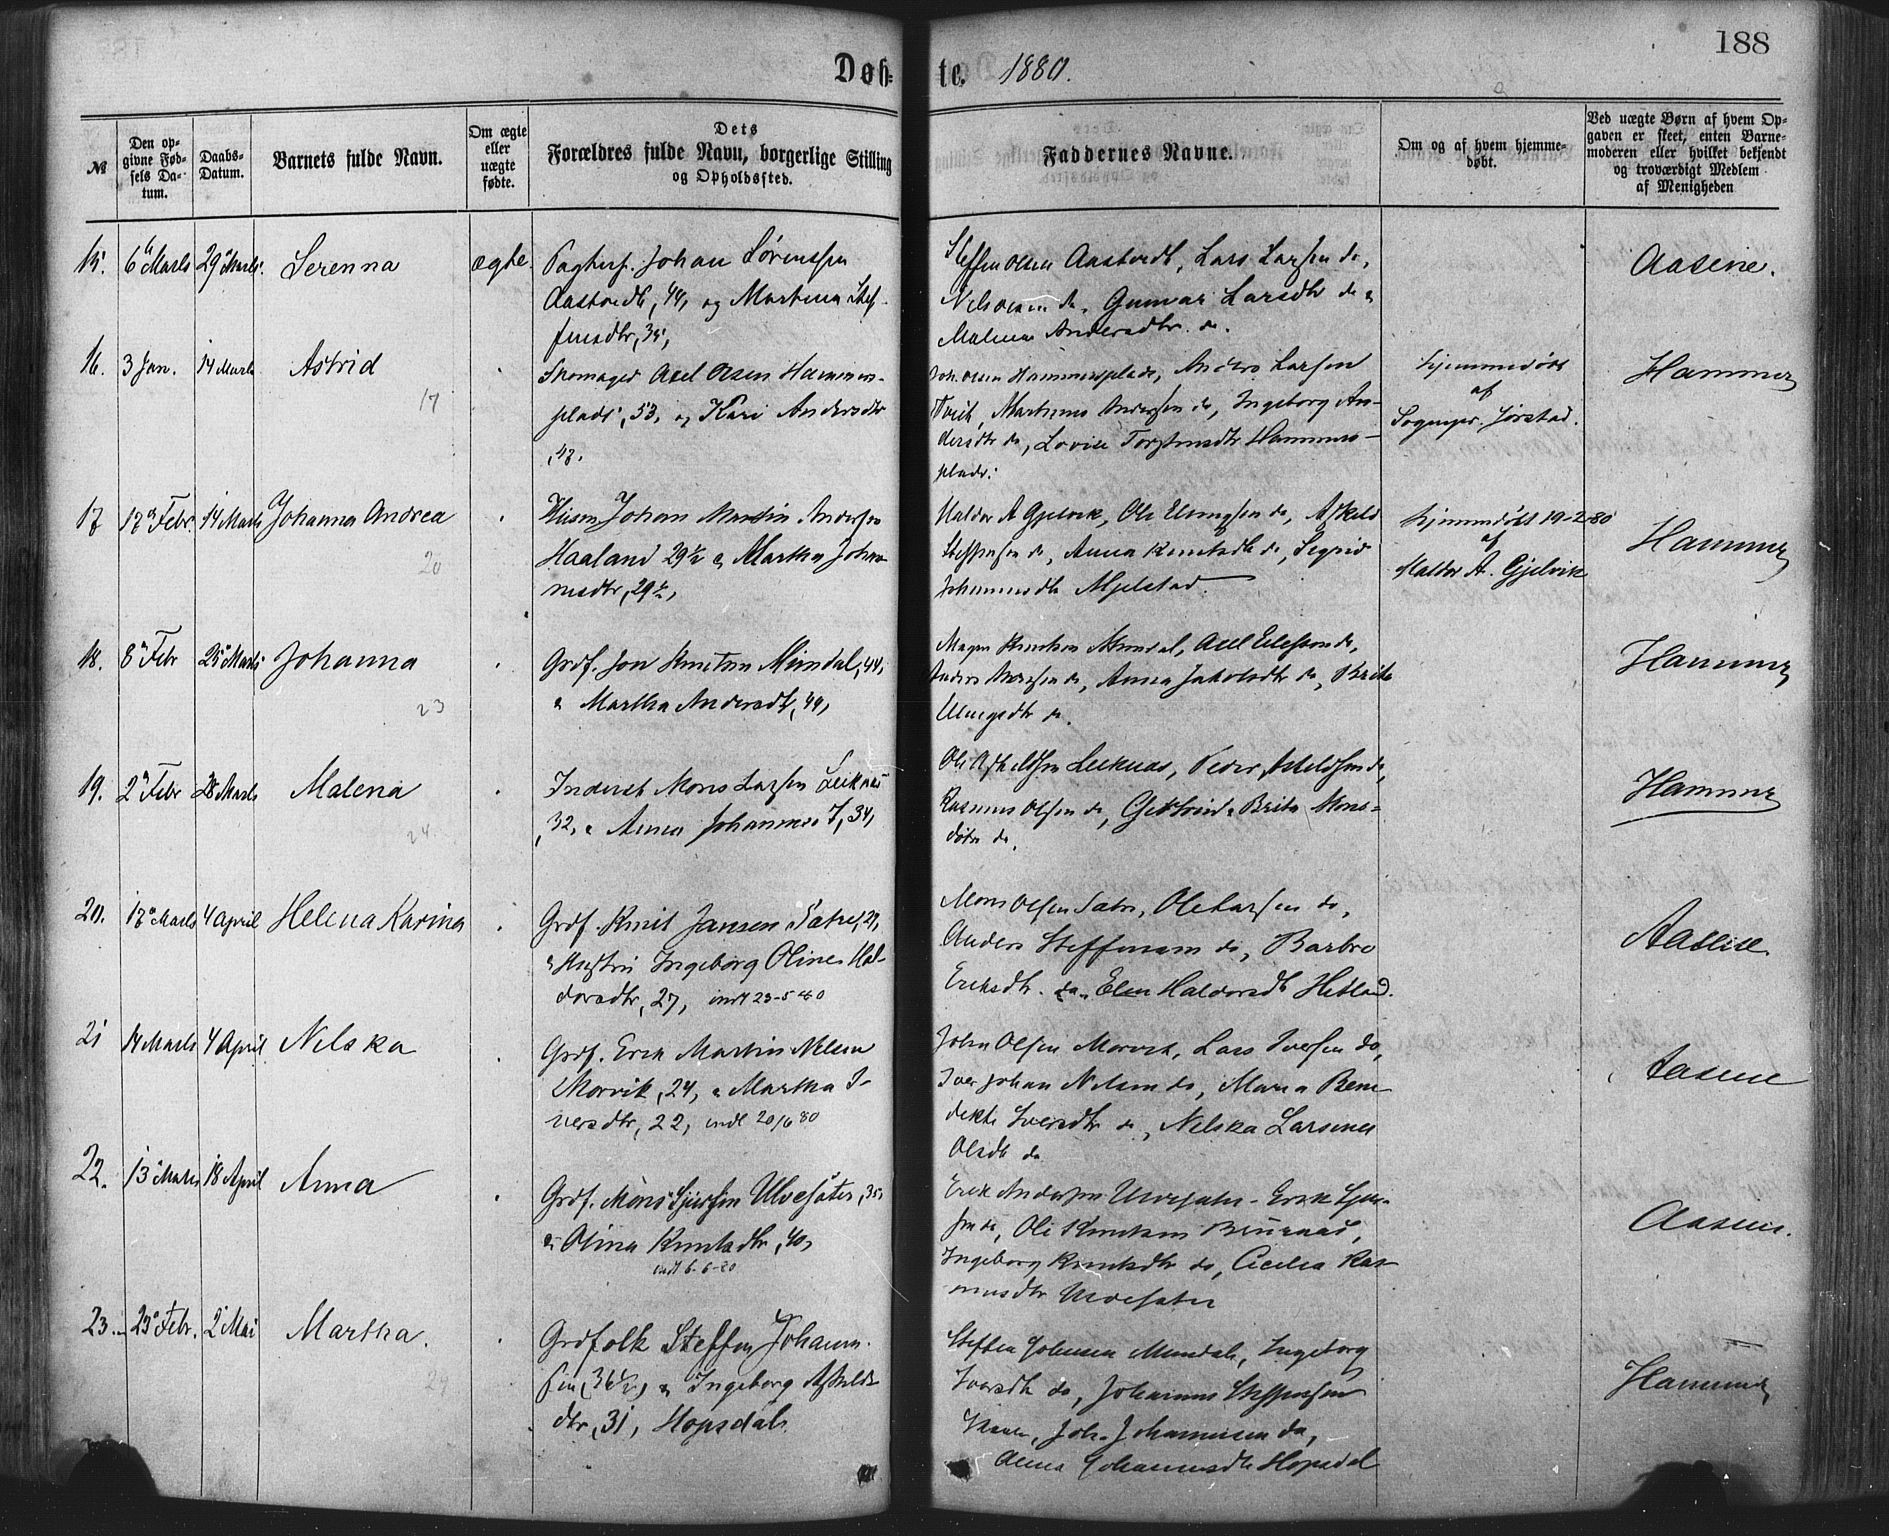 188
Døb-
te. 1880.
№
Den op-
givne Fød-
sels Da-
tum.
Daabs-
Datum.
Barnets fulde Navn.
Om ægte
eller
uægte
fødte.
Dets
Forældres fulde Navn, borgerlige Stilling
og Opholdssted.
Faddernes Navne.
Om og af hvem hjemme-
døbt.
Ved uægte Børn af hvem Op-
gaven er skeet, enten Barne-
moderen eller hvilket bekjendt
og troværdigt Medlem
af Menigheden
15. 6 Marts 29 Marts. Serenna ægte. Johan Sørenssen
Aastvedt, 44, og Martina Stef-
fensdtr, 35,
Steffen Olsen Aastvedt, Lars Larssen do,
Nils Olsen do, Gunvar Larsdtr do &
Malena Andersdtr. do.
Aasene.
16. 3 Jan. 14 Marts Astrid
17
Skomager Axel Olsen Hammers-
plads, 53, og Kari Andersdtr
, 43.
Joh. Olsen Hammersplads, Anders Larssen
Martinus Anderssen do, Ingeborg An-
dersdtr do, Lovise Hammers-
plads.
Hjemmedøbt
af
Sognepr. Jørstad.
Hammer
17 17 Febr. 14 Marts Johanna Andrea
20
Husm Johan Martin Anderssen
Haaland 29½ & Martha Johan-
nesdtr, 29½,
Haldor A Gjelvik, Ole do, Askeld
Steffenssen do, Anna Knutsdtr do, Sigrid
Johannesdtr Mjelstad.
Hjemmedøbt 19-2-80
af
Haldor A. Gjelvik
Hammer
18. 8 Febr 25 Marts Johanna
23
Grdf. Jon Knutsen Mundal, 44,
& Martha Andersdtr, 44,
Magne Knutsen Mundal, Axel do,
Anders do, Anna Jakobsdtr do, Brita
do.
Hammer
19. 2 Febr 28 Marts Malena
24.
Inderst Mons Larssen Leiknes
, 32, & Anna Johannesd, 34,
Ole Leiknes, Peder Askeldsen do,
Rasmus Olssen do, & Brita Mons-
døtre do.
Hammer
20. 17 Marts 4 April Helena Karina
Grdf. Knut Jansen Sætre, 29,
& Hustru Ingeborg Oline Hal-
dorsdtr, 27, indt 23-5-80
Mons Olsen Sætre, Ole Larssen do,
Anders Steffensen do, Barbro
Eriksdtr. do. Elen Haldorsdtr Hetland.
Aasene.
21 14 Marts 4 April Nelska
Grdf. Erik Martin Nelsen
Morvik, 24, & Martha I-
versdtr, 22, indt 20/6 80
John Olsen Morvik, Lars Iverssen do,
Iver Johan Nelsen do, Maria Bene-
dikte Iversdtr do, Nelska Larsine
Olsdtr do
Aasene
22. 13 Marts 18 April Anna
Grdf. Mons Sjurssen Ulvesæter, 35,
& Olina Knutsdtr, 40,
indt 6-6-80
Erik Anderssen Ulvesæter, Erik Sjur-
sen do, Ole Knutsen Bruraas,
Ingeborg Knutsdtr do, Cecilia Ras-
musdtr Ulvesæter
Aasene.
23. 23 Febr. 2 Mai Martha.
29
Grdfolk Steffen Johann-
sen, 36½, & Ingeborg Askelds-
dtr, 31, Hopsdal.
Steffen Johnsen Mundal, Ingeborg
Iversdtr do, Johannes Steffenssen
Joh. Johannesen do,
Anna Johannesdtr Hopsdal
Hammer